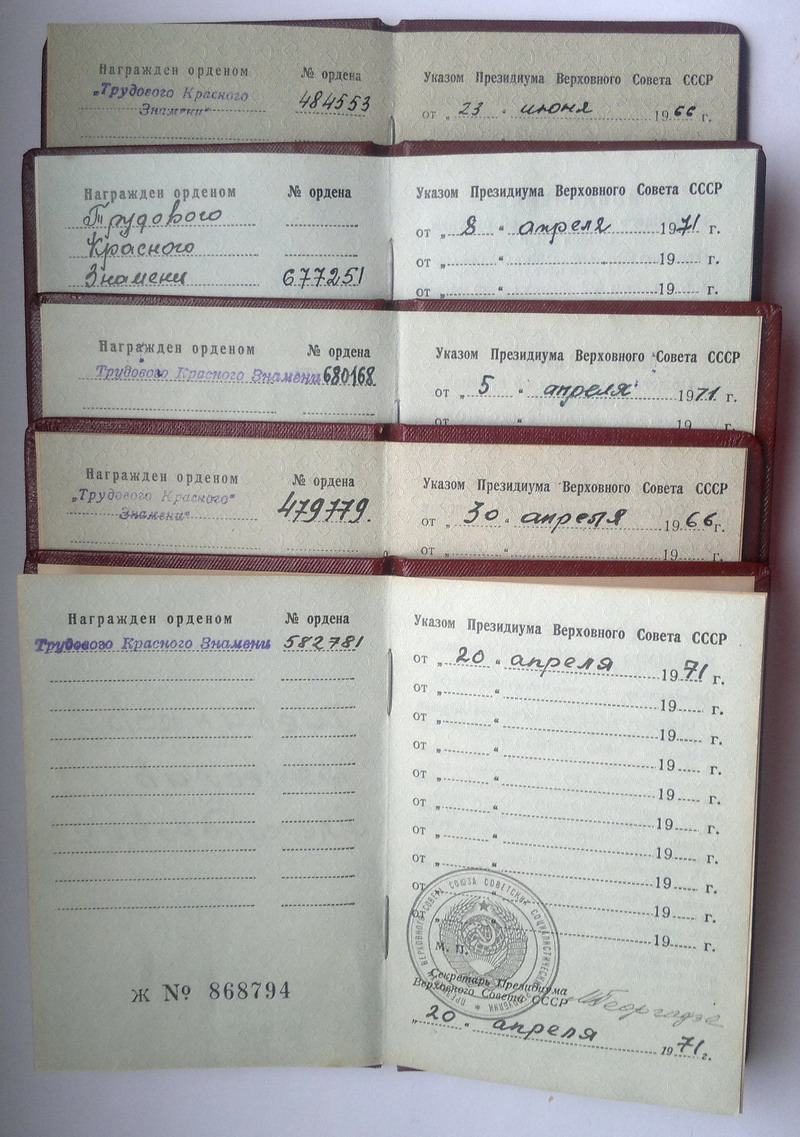 Награжден орденом
№ ордена
„Трудового Красного
Знамени“
484553
Указом Президиума Верховного Совета СССР
от „ 23 “ июня 1966 г.
Награжден орденом
№ ордена
Трудового
Красного
Знамени 677251
Указом Президиума Верховного Совета СССР
от „ 8 “ апреля 1971 г.
от „ “ 19 г.
от „ “ 19 г.
Награжден орденом
№ ордена
Трудового Красного Знамени 680168
Указом Президиума Верховного Совета СССР
от „ 5 “ апреля 1971 г.
от „ “ 19 г.
Награжден орденом
№ ордена
„Трудового Красного“
Знамени“
479779.
Указом Президиума Верховного Совета СССР
от „ 30 “ апреля 1966 г.
от „ “ 19 г.
Награжден орденом
№ ордена
Трудового Красного Знамени 582781
Ж № 868794
Указом Президиума Верховного Совета СССР
от „ 20 “ апреля 1971 г.
от „ “ 19 г.
от „ “ 19 г.
от „ “ 19 г.
от „ “ 19 г.
от „ “ 19 г.
от „ “ 19 г.
от „ “ 19 г.
от „ “ 19 г.
от „ “ 19 г.
М. П.
Секретарь Президиума
Верховного Совета СССР
М Георгадзе
„ 20 “ апреля 1971 г.